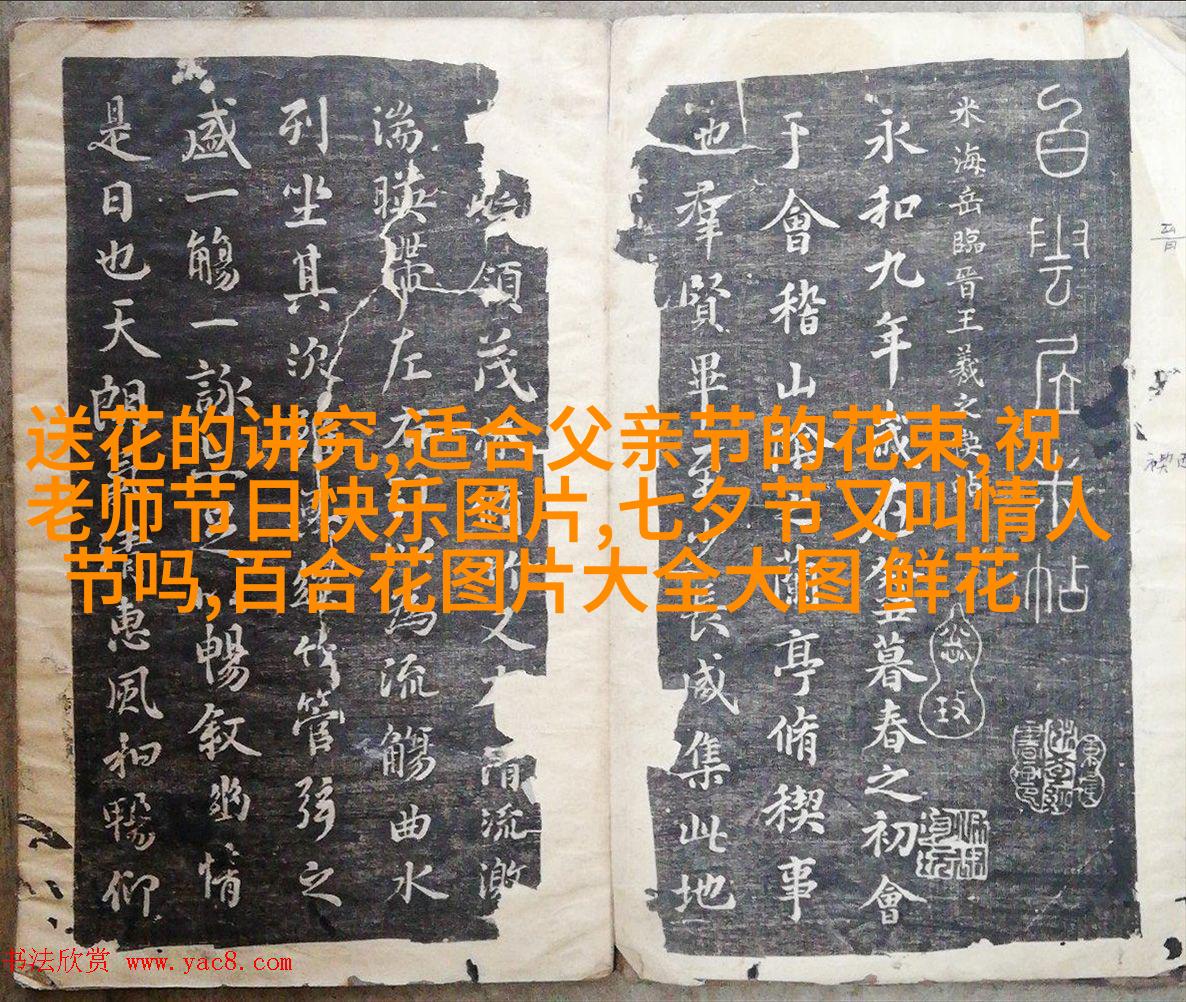 送花的讲究,适合父亲节的花束,祝
老师节日快乐图片,七夕节又叫情人
节吗,百合花图片大全大图 鲜花
白雲居米帖
米海岳臨晉王羲之
永和九年歲在暮春之初會
于會稽山蘭亭脩稧事
也羣賢畢至少長咸集此地
領茂又有清流激
湍暎帶左右為流觴曲水
列坐其次絲竹管弦之
盛一觴一詠暢叙幽情
是日也天朗氣清惠風和暢仰
书法欣赏 www.yac8.com